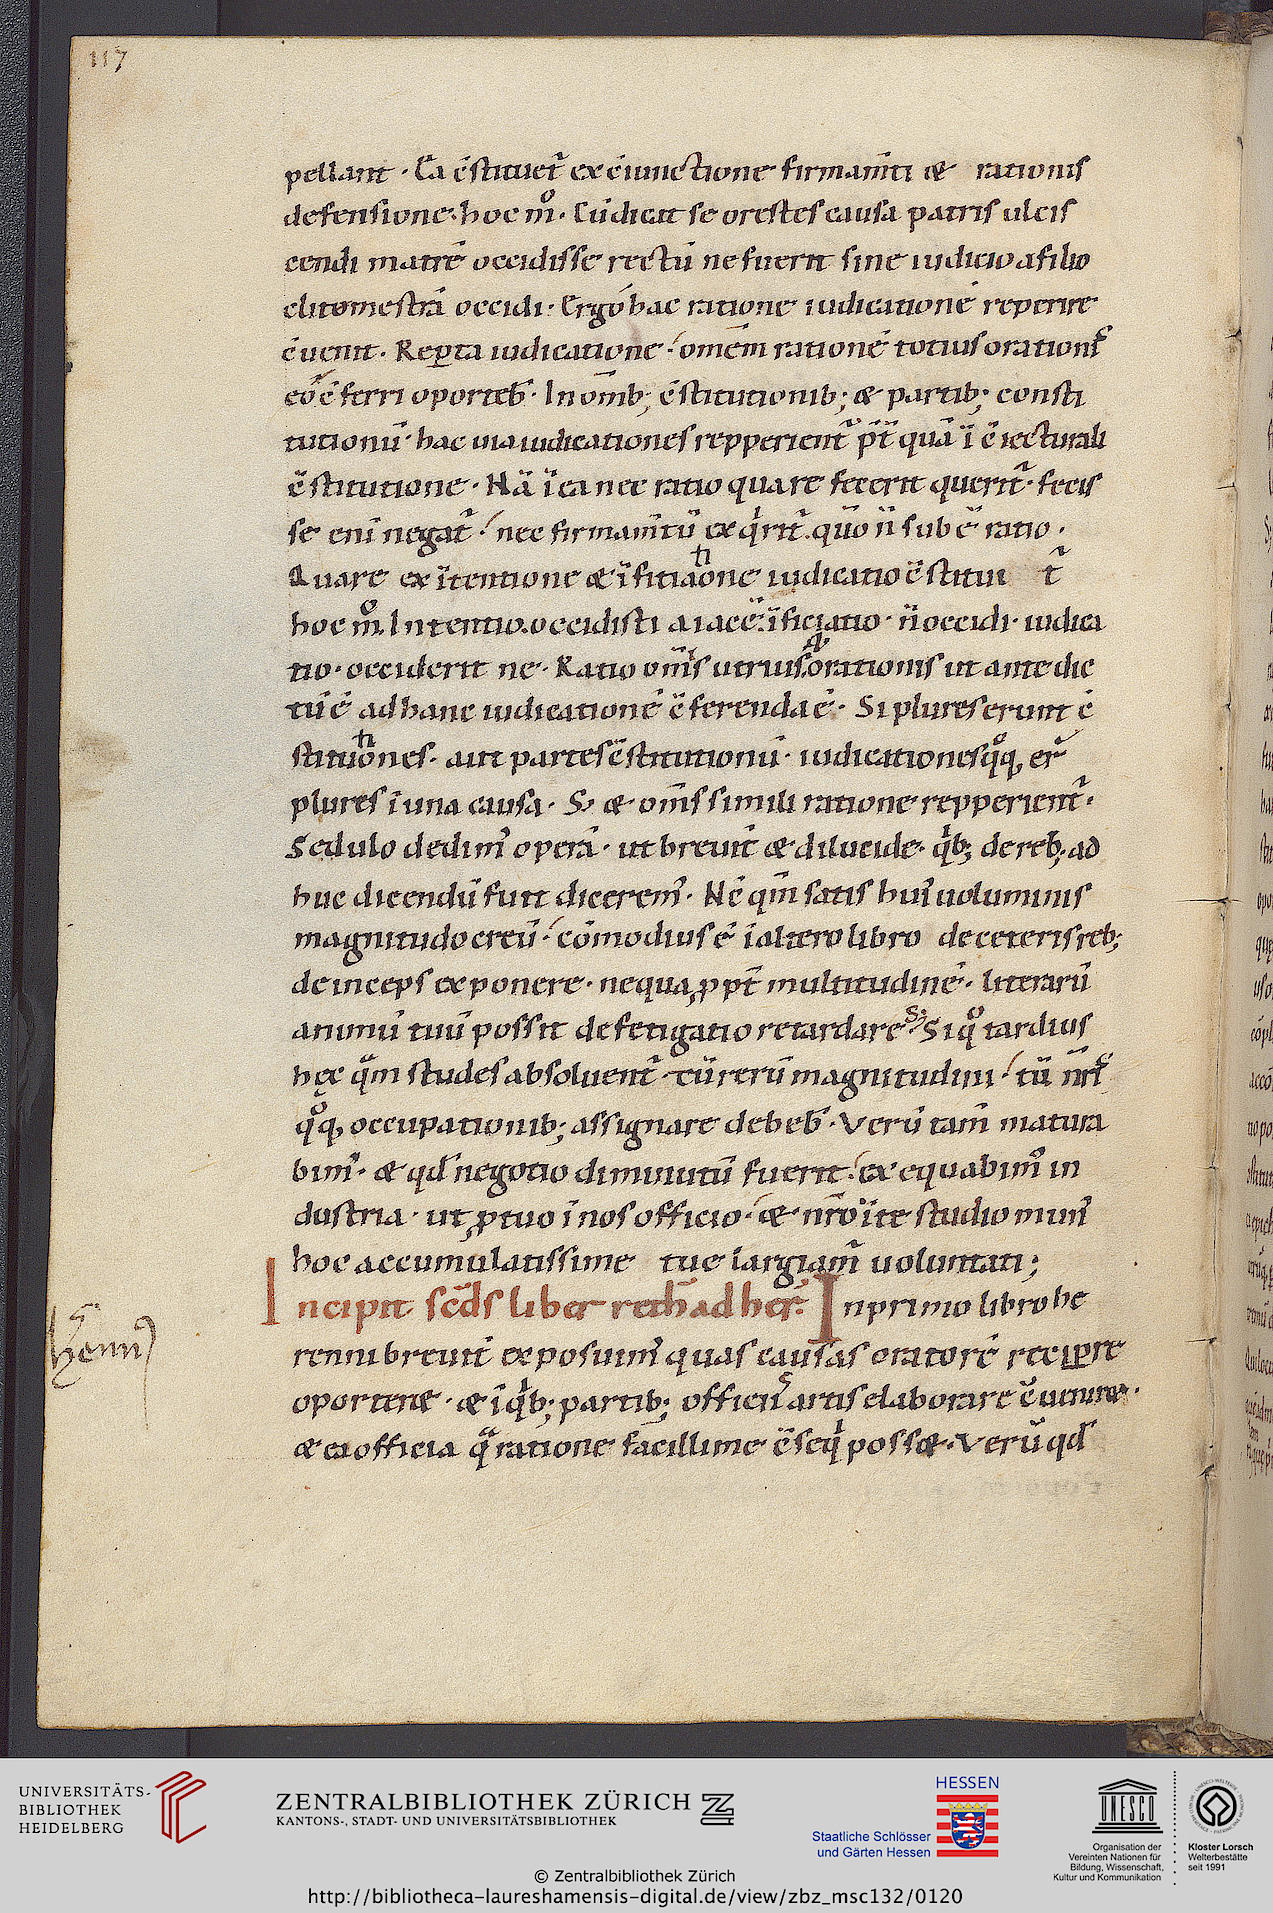 117
pellant · Ea ċstituet᷑ ex ċiunctione firmam̅ti & rationis
defensione. hoc m̊. Cū dicat se orestes causa patris ulcis
cendi matrē occidisse rectū ne fuerit sine iudicio a filio
clitomestrā occidi · Ergo hac ratione iudicationē reperire
c̄uenit · Rep̱ta iudicatione · om̅em rationē totius oration᷑
eo c̄ferri oporteb̅ · In om̅ib; c̄stitutionib; & partib; consti
tutionū · hac uia iudicationes repperient᷑ p̅t̅ quā ī c̄iecturali
c̄stitutione · Nā ī ea nec ratio quare fecerit querit᷑ · fecis
se enī negat᷑ · nec firmam̅tū exq̍rit᷑. quō n̄ sub ē ratio ·
Quare ex ītentione & īfitiatione iudicatio c̄stitui t᷑
hoc m̊. Intentio. occidisti aiacē. īficiatio · n̄ occidi · iudica
tio · occiderit ne · Ratio om̅is utriusq; orationis ut ante dic
tū ē ad hanc iudicationē c̄ferenda ē · Si plures erunt c̄
stitutiones · aut partes c̄stitutionū · iudicationes q̊q, er᷑
plures ī una causa · S; & om̅s simili ratione repperient᷑ ·
Sedulo dedim᷒ operā · ut breuit̄ & dilucide · q̍b; de reb; ad
huc dicendū fuit dicerem᷒ · Nc̄ qm̅ satis hui᷒ uoluminis
magnitudo creū · cōmodius ē ī altero libro de ceteris reb;
deinceps exponere · ne qua, ꝓpt̄ multitudinē · literarū
animū tuū possit defetigatio retardare S; Si q̊ tardius
hęc q̄m studes absoluent᷑ · cū rerū magnitudini · tū nr̅i᷒
q̊q, occupationib; assignare debeb̅ · Verū tam̄ matura
bim᷒ · & qd̅ negotio diminutū fuerit · exequabim᷒ in
dustria · ut, ꝓ tuo ī nos officio · & nr̅o ī te studio mun᷒
hoc accumulatissime tue largiam᷑ uoluntati;
Incipit sc̅ds liber reth̅ ad her̅. In primo libro he
henni
renni breuit̄ exposuim᷒ quas causas oratorē recip̱e
oporter& · & ī q̍b; partib; officiū artis elaborare c̄uenir& ·
& ea officia q̄ ratione facillime c̄seq̍ poss& · Verū qd̅
UNIVERSITÄTS-
BIBLIOTHEK
HEIDELBERG
ZENTRALBIBLIOTHEK ZÜRICH
KANTONS-, STADT- UND UNIVERSITÄTSBIBLIOTHEK
HESSEN
Staatliche Schlösser
und Gärten Hessen
UNESCO
Organisation der
Vereinten Nationen für
Bildung, Wissenschaft,
Kultur und Kommunikation
Kloster Lorsch
Welterbestätte
seit 1991
© Zentralbibliothek Zürich
http://bibliotheca-laureshamensis-digital.de/view/zbz_msc132/0120